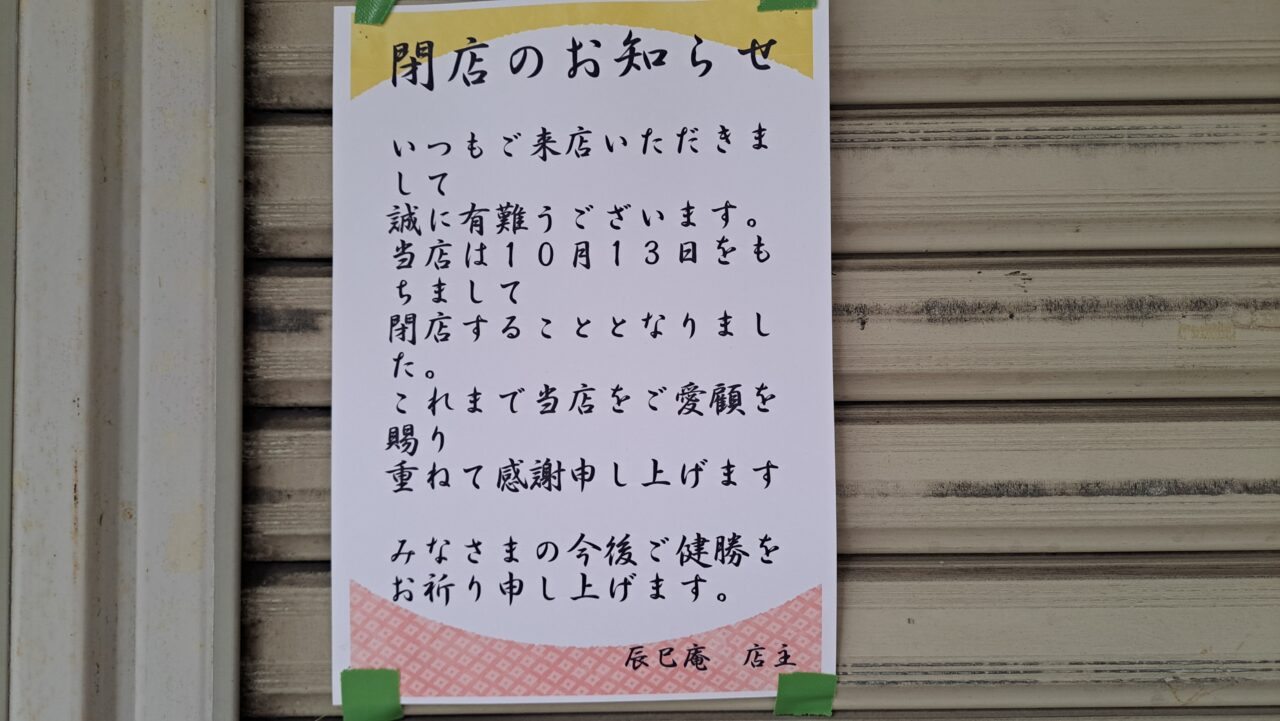 閉店のお知らせ
いつもご来店いただきま
して
誠に有難うございます。
当店は１０月１３日をも
ちまして
閉店することとなりまし
た。
これまで当店をご愛顧を
賜り
重ねて感謝申し上げます
みなさまの今後ご健勝を
お祈り申し上げます。
辰巳庵　店主